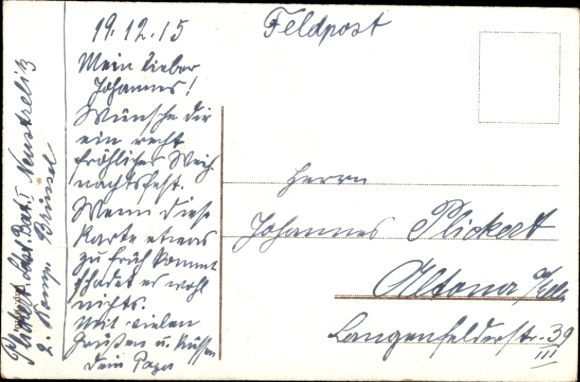 19.12.15
Feldpost
Mein lieber
Johannes!
Wünsche dir
ein recht
fröhliches Weih
nachtsfest.
Wenn diese
Karte etwas
zu früh kommt
schadet es wohl
nichts.
Mit vielen
Grüßen u. Küssen
Dein Papa
Herrn
Johannes Plickert
Altona a/Elbe
Langenfelderstr. 39
III
Plickert Ldst. Bat. I Neustrelitz
2. Komp. Brüssel